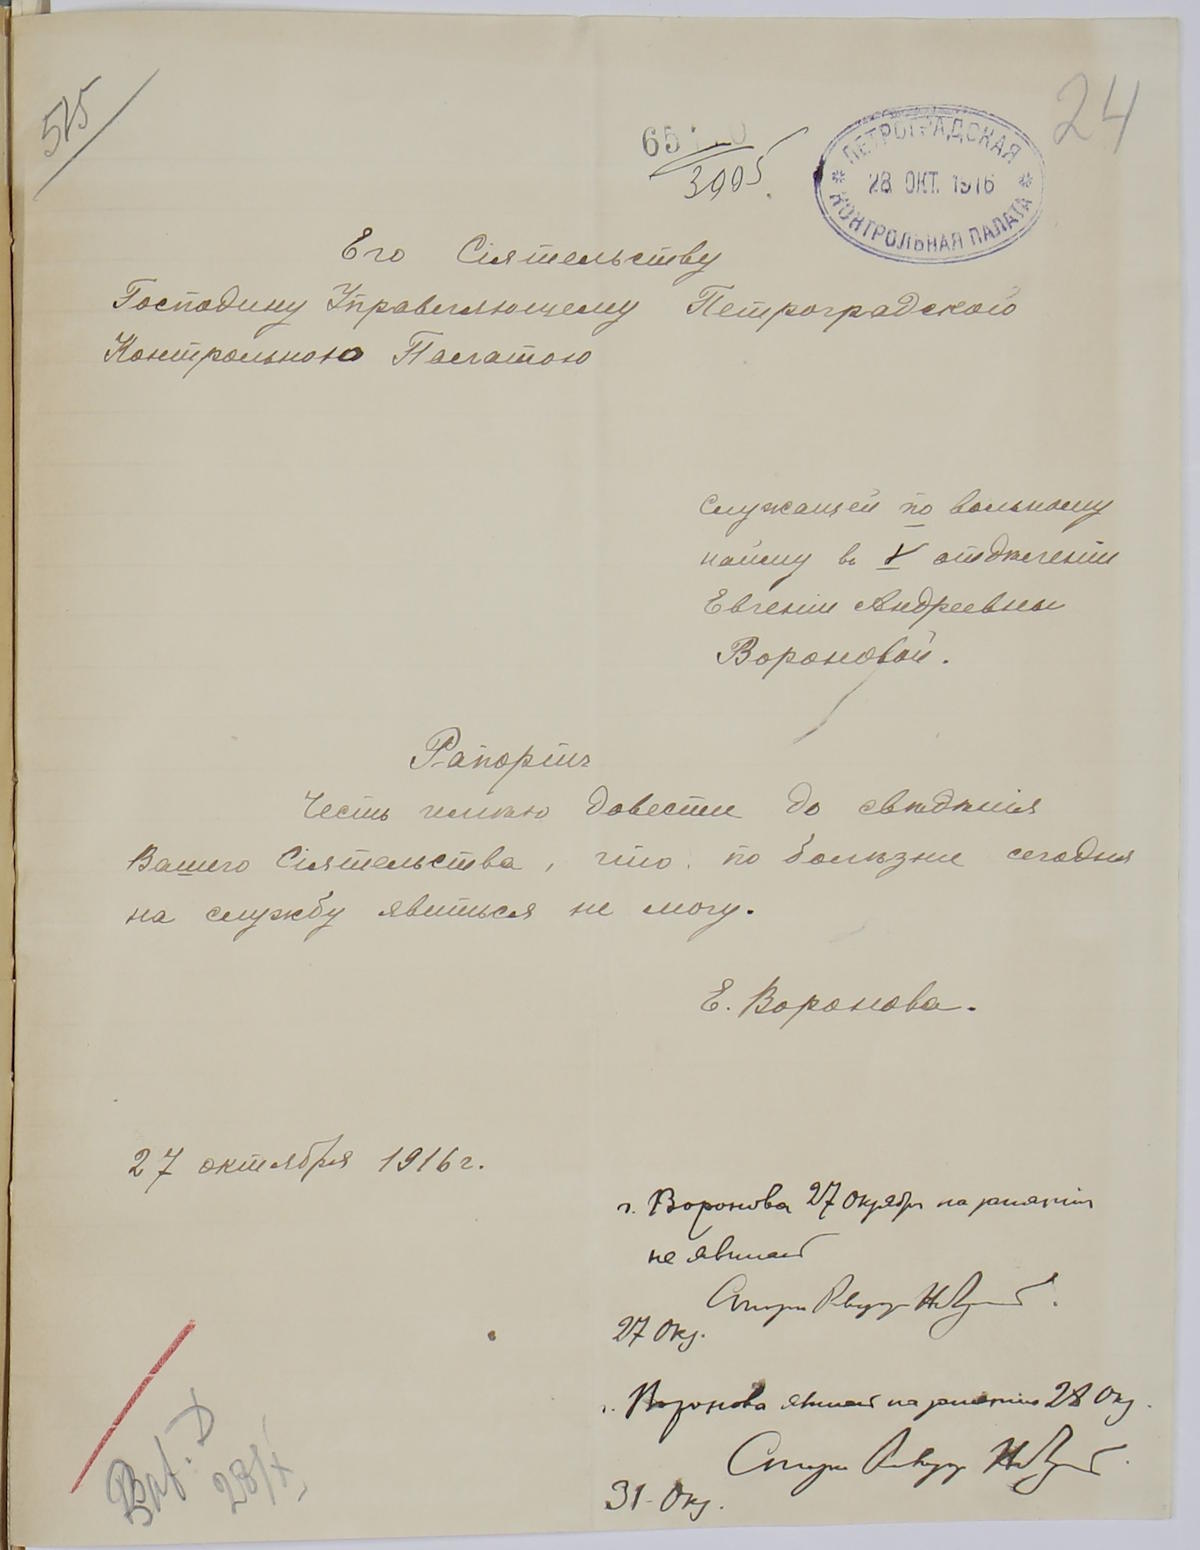 515
24
3995.
ПЕТРОГРАДСКАЯ
28 ОКТ. 1916
КОНТРОЛЬНАЯ ПАЛАТА
Его Сіятельству
Господину Управляющему Петроградской
Контрольною Палатою
Служащей по вольному
найму въ V отдѣленіи
Евгеніи Андреевны
Вороновой.
Рапортъ
Честь имѣю довести до свѣдѣнія
Вашего Сіятельства, что по болѣзни сегодня
на службу явиться не могу.
Е. Воронова.
27 октября 1916 г.
г. Воронова 27 Октября на занятія
не явилась
27 Окт.
г. Воронова явилась на занятія 28 Окт.
31 Окт.
28/X